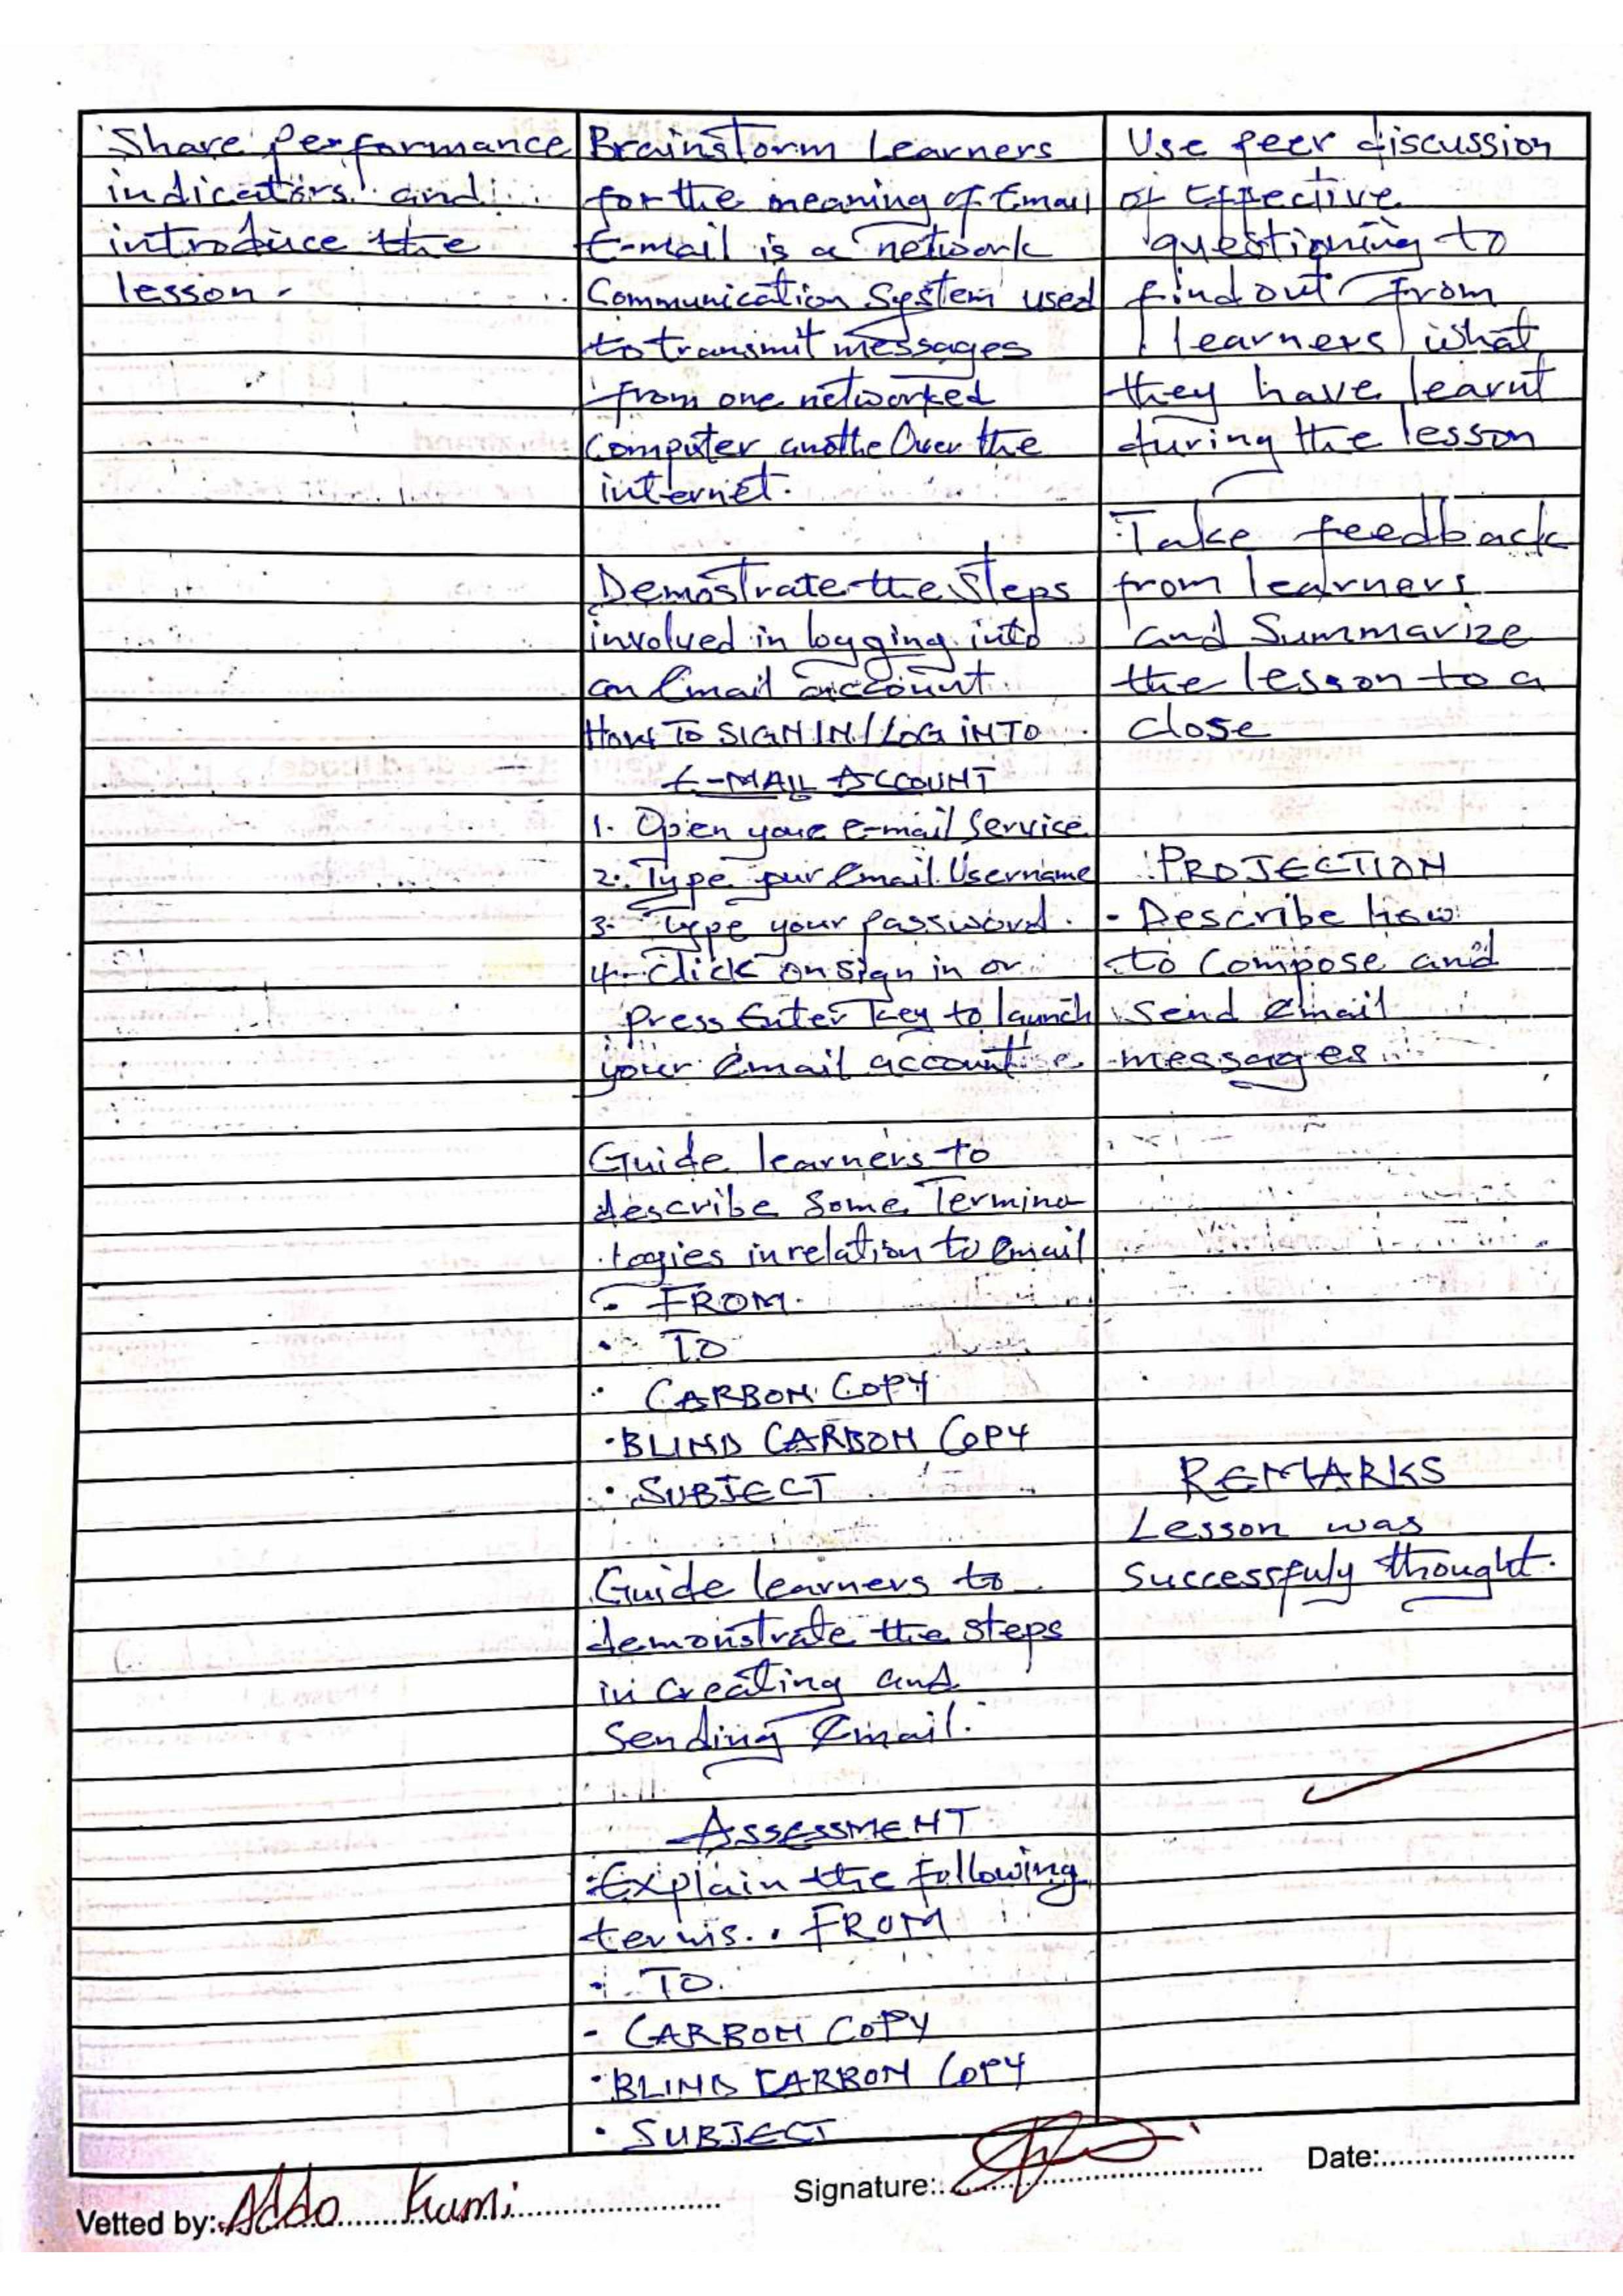 Share Performance
indicators and
introduce the
lesson.
Brainstorm Learners
for the meaning of Email
E-mail is a network
Communication System used
to transmit messages
from one networked
Computer anothe Over the
internet.
Demostrate the steps
involved in logging into
an Email account.
HOW TO SIGN IN/LOG INTO
E-MAIL ACCOUNT
1. Open your e-mail Service
2. Type your Email Username
3- Type your Password.
4- Click on sign in or
press Enter key to launch
your Email account
Guide learners to
describe Some Termino
logies in relation to Email
- FROM
• TO
• CARBON COPY
• BLIND CARBON COPY
• SUBJECT
Guide learners to
demonstrate the steps
in creating and
Sending Email.
ASSESSMENT
Explain the following
terms. • FROM
• TO.
- CARBON COPY
• BLIND CARBON COPY
• SUBJECT
Use peer discussion
of Effective
questioning to
find out from
learners what
they have learnt
during the lesson
Take feedback
from learners
and Summarize
the lesson to a
close
PROJECTION
- Describe how
to Compose and
Send Email
messages
REMARKS
Lesson was
Successfuly thought.
Vetted by: Addo Kumi
Signature:
Date: